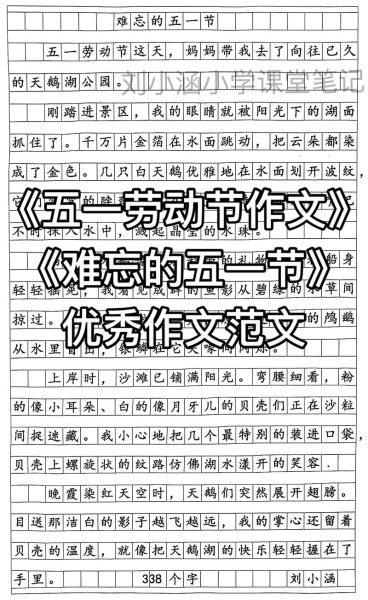 难忘的五一节
五一劳动节这天，妈妈带我去了向往已久
的天鹅湖公园。
刘小涵小学课堂笔记
刚踏进景区，我的眼睛就被阳光下的湖面
抓住了。千万片金箔在水面跳动，把云朵都染
成了金色。几只白天鹅优雅地在水面划开波纹，
《五一劳动节作文》
不时探入水中，溅起晶莹的水珠。
《难忘的五一节》
船身
轻轻摇晃，我看见成群的鱼影从碧绿的水草间
掠过。
优秀作文范文
的鸬鹚
从水里冒出，银鳞在它尖喙间闪烁。
上岸时，沙滩已铺满阳光。弯腰细看，粉
的像小耳朵、白的像月牙儿的贝壳们正在沙粒
间捉迷藏。我小心地把几个最特别的装进口袋，
贝壳上螺旋状的纹路仿佛湖水漾开的笑容.
晚霞染红天空时，天鹅们突然展开翅膀。
目送那洁白的影子越飞越远，我的掌心还留着
贝壳的温度，就像把天鹅湖的快乐轻轻握在了
手里。 338个字 刘小涵